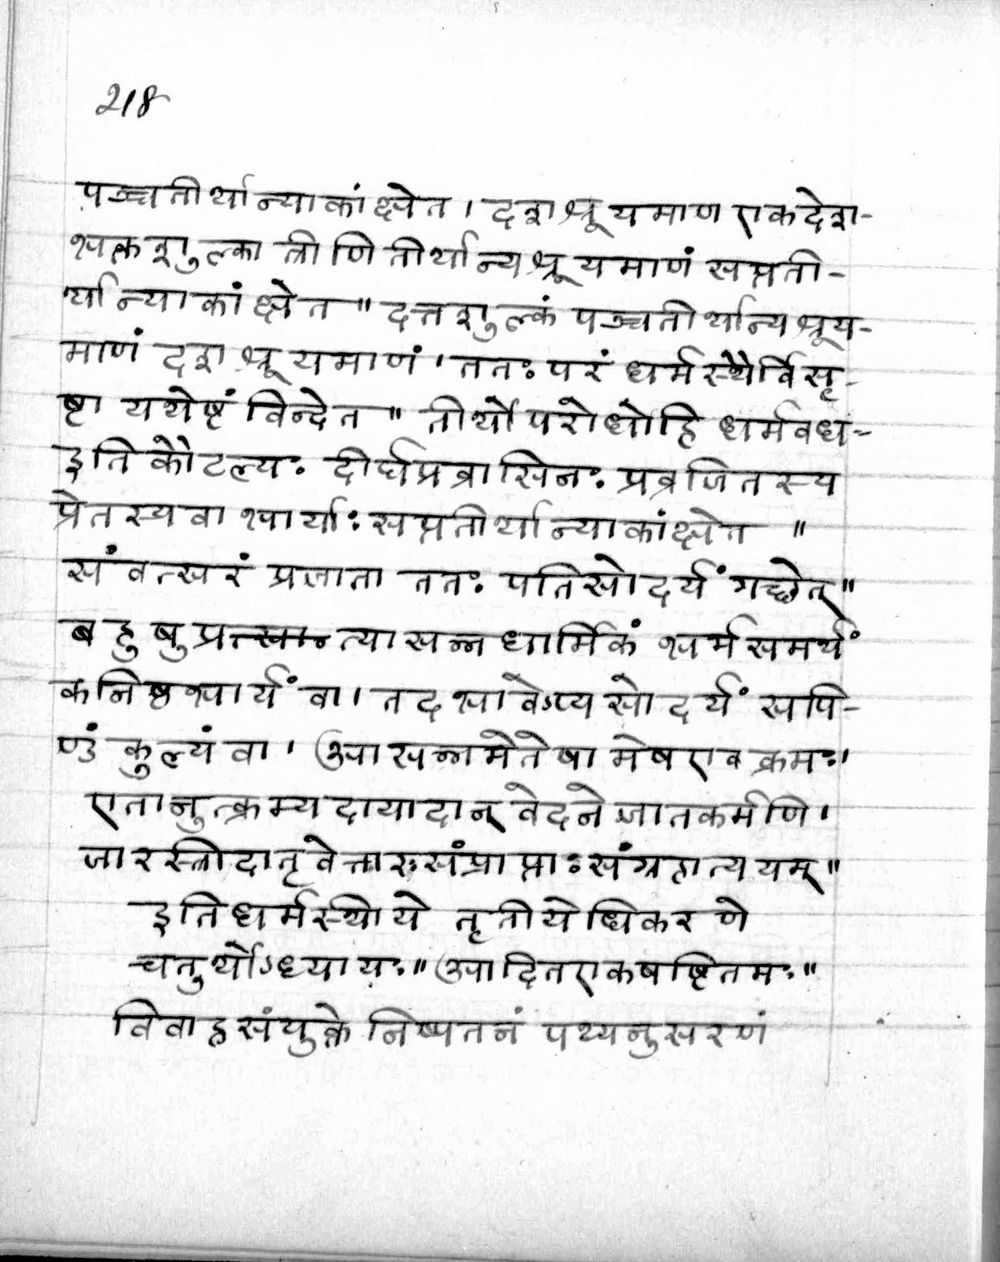 218
पञ्चतीर्थान्याकांक्षेत । दश श्रूयमाण एकदेश-
भक्तशुल्का त्रीणि तीर्थान्यश्रूयमाणं सप्तती-
र्थान्याकांक्षेत ॥ दत्तशुल्कं पञ्चतीर्थान्यश्रूय-
माणं दश श्रूयमाणं । ततः परं धर्मस्थैर्विसृ-
ष्टा यथेष्टं विन्देत ॥ तीर्थोपरोधोहि धर्मवध-
इति कौटल्यः दीर्घप्रवासिनः प्रव्रजितस्य
प्रेतस्यवा भार्याः सप्ततीर्थान्याकांक्षेत ॥
संवत्सरं प्रजाता ततः पतिसोदर्यं गच्छेत् ॥
बहुषु प्रत्यासन्न धार्मिकं भर्मसमर्थं
कनिष्ठभार्यं वा । तदभावेऽप्यसोदर्यं सपि-
ण्डं कुल्यं वा । आसन्नमेतेषामेषएव क्रमः ।
एतानुत्क्रम्य दायादान् वेदने जातकर्मणि ।
जारस्त्रीदातृवेत्तारः संप्राप्ताः संग्रहात्ययम् ॥
इति धर्मस्थीये तृतीयेधिकरणे
चतुर्थोऽध्यायः ॥ आदितएकषष्टितमः ॥
विवाहसंयुक्ते निष्पतनं पथ्यनुसरणं